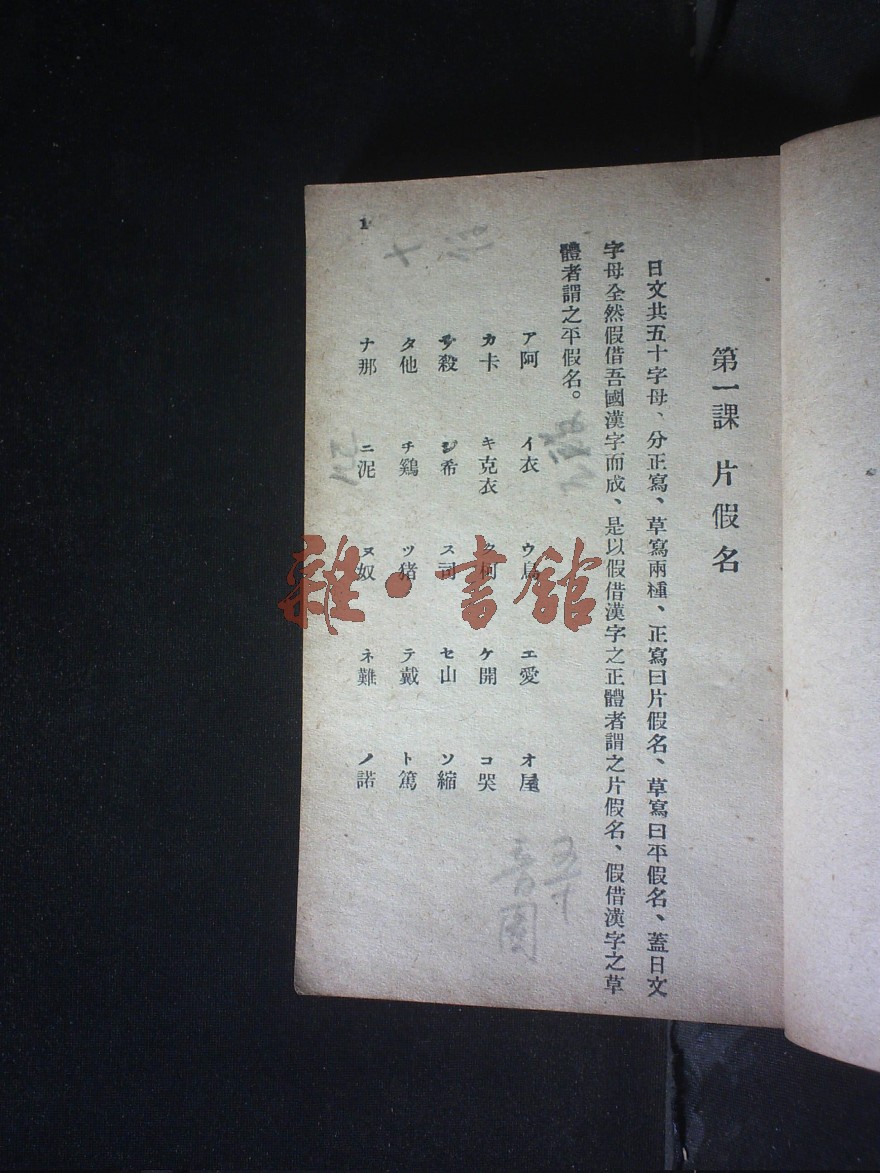 第一課 片假名
日文共五十字母、分正寫、草寫兩種、正寫曰片假名、草寫曰平假名、蓋日文
字母全然假借吾國漢字而成、是以假借漢字之正體者謂之片假名、假借漢字之草
體者謂之平假名。
ア阿 イ衣 ウ烏 エ愛 オ屋
カ卡 キ克衣 ク柯 ケ開 コ哭
サ殺 シ希 ス司 セ山 ソ縮
タ他 チ鷄 ツ猪 テ戴 ト篤
ナ那 ニ泥 ヌ奴 ネ難 ノ諾
1
五十
音图
雜·書館